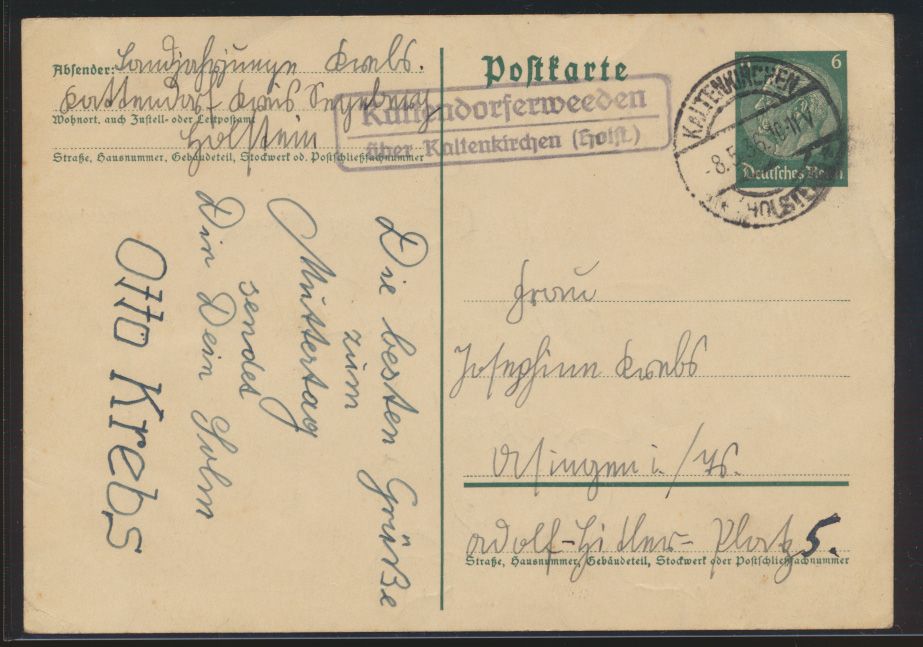 Absender: Landjahrjunge Krebs.
Kattendorf - Kreis Segeberg
Wohnort, auch Zustell- oder Leitpostamt
Holstein
Straße, Hausnummer, Gebäudeteil, Stockwerk od. Postschließfachnummer
Kattendorferweeden
über Kaltenkirchen (Holst.)
Postkarte
6
Deutsches Reich
KALTENKIRCHEN
-8.5.36.10-11V
(HOLSTEIN)
Die besten Grüße
zum
Muttertag
sendet
Dir Dein Sohn
Otto Krebs
Frau
Josephine Krebs
i./
Adolf-Hitler-Platz 5.
Straße, Hausnummer, Gebäudeteil, Stockwerk oder Postschließfachnummer